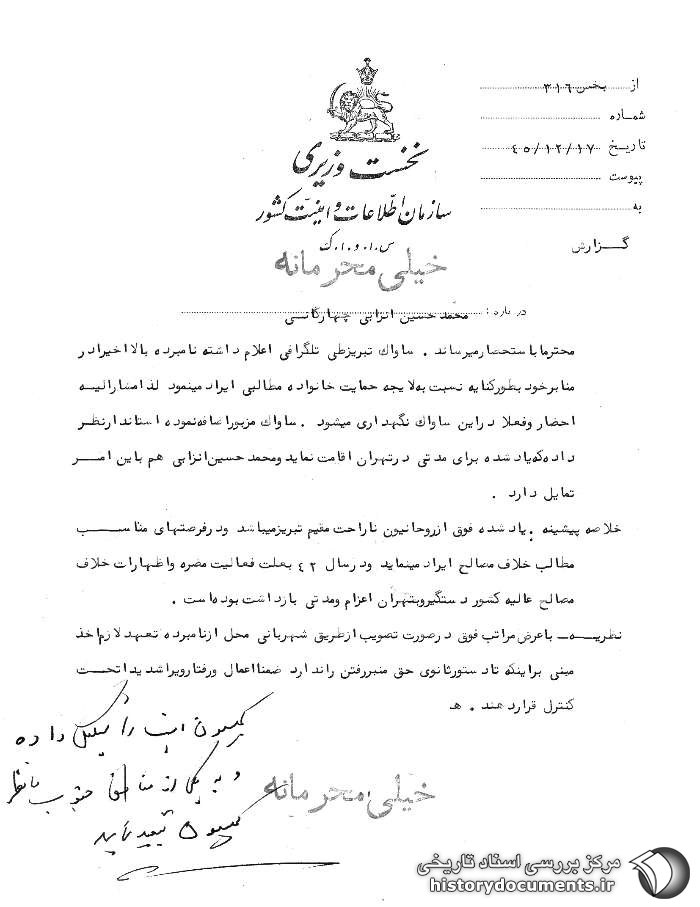 از بخش ۳۱۶
شماره
تاریخ ۴۵/۱۲/۱۷
پیوست
به
نخست وزیری
سازمان اطلاعات و امنیت کشور
س.ا.و.ا.ک
گزارش
خیلی محرمانه
درباره : محمد حسین انزابی چهارگانی
محترما باستحضار میرساند . ساواک تبریز طی تلگرافی اعلام داشته نامبرده بالا اخیرا در
منابر خود بطور کنایه نسبت به لایحه حمایت خانواده مطالبی ایراد مینمود لذا مشارالیه
احضار و فعلا در این ساواک نگهداری میشود . ساواک مزبور اضافه نموده استاندار نظر
داده که یاد شده برای مدتی در تهران اقامت نماید و محمد حسین انزابی هم باین امر
تمایل دارد .
خلاصه پیشینه . یاد شده فوق از روحانیون ناراحت مقیم تبریز میباشد و در فرصتهای مناسب
مطالب خلاف مصالح ایراد مینماید و در سال ۴۲ بعلت فعالیت مضره و اظهارات خلاف
مصالح عالیه کشور دستگیر و بتهران اعزام و مدتی بازداشت بوده است .
نظریه ـ با عرض مراتب فوق در صورت تصویب از طریق شهربانی محل از نامبرده تعهد لازم اخذ
مبنی بر اینکه تا دستور ثانوی حق منبر رفتن را ندارد ضمنا اعمال و رفتار ویرا شدیدا تحت
کنترل قرار دهند . ه
کمیسیون امنیت را تشکیل داده
و به یکی از مناطق جنوب با نظر
کمیسیون تبعید نمایید
خیلی محرمانه
مرکز بررسی اسناد تاریخی
historydocuments.ir